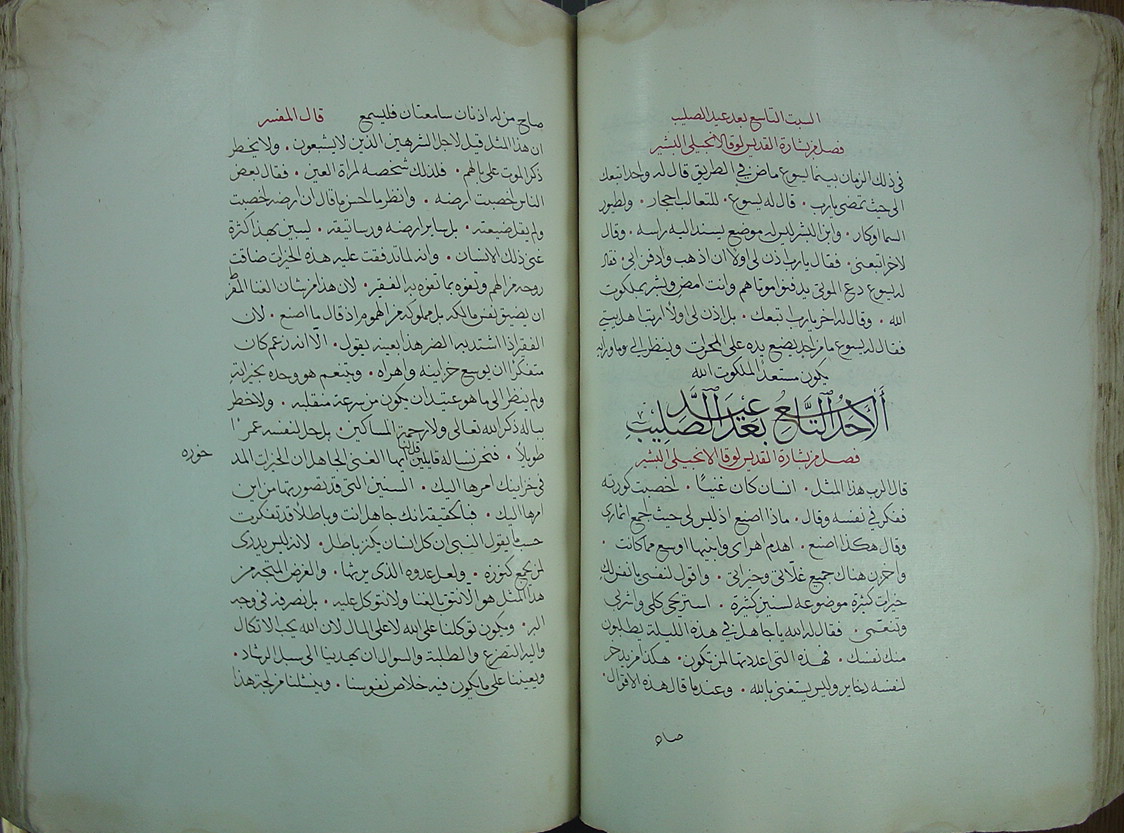 السبت التاسع بعد عيد الصليب
فصل من بشارة القديس لوقا الانجيلي البشير
في ذلك الزمان بينما يسوع ماض في الطريق قال له واحد اتبعك
الى حيث تمضي يارب • قال له يسوع • للثعالب احجار • ولطيور
السما اوكار • وابن البشر ليس له موضع يسند اليه رسه • وقال
لاخر اتبعني • فقال يارب اذن لي اولا ان اذهب وادفن ابي • فقال
له يسوع دع الموتى يدفنوا موتاهم وانت امض وبشر بملكوت
الله • وقال له اخر يارب اتبعك • بل اذن لي اولا ارتب اهل بيتي
فقال له يسوع ما من احد يضع يده على المحراث وينظر الى ما ورايه
يكون مستعدا لملكوت الله
الاحد التاسع بعد عيد الصليب
فصل من بشارة القديس لوقا الانجيلي البشير
قال الرب هذا المثل • انسان كان غنيا • اخصبت كورته
ففكر في نفسه وقال • ماذا اصنع اذ ليس لي حيث اجمع اثماري
وقال هكذا اصنع • اهدم اهراي وابنيها اوسع مما كانت •
واخزن هناك جميع غلاتي وخيراتي • واقول لنفسي يا نفس لكِ
خيرات كثيرة موضوعه لسنين كثيرة • استريحي كلي واشربي
وتنعمي • فقال له الله يا جاهل في هذه الليلة يطلبون
منك نفسك • فهذه التي اعددتها لمن تكون • هكذا من يدخر
لنفسه دخاير وليس يستغني بالله • وعندما قال هذه الاقوال •
صاح
صاح من له اذنان سامعتان فليسمع قال المفسر
ان هذا المثل قيل لاجل الشرهين الذين لا يشبعون • ولا يخطر
ذكر الموت على بالهم • فلذلك شخصه لمرآة العين • فقال بعض
الناس اخصبت ارضه • وانظر ما احسن ما قال ان ارضه اخصبت
ولم يقل ضيعته • بل ساير ارضه ورساتيقه • ليبين بهذا كثرة
غنى ذلك الانسان • وانه لما تدفقت عليه هذه الخيرات ضاقت
روحه من الهم وتفوه بما تفوه به الفقير • لان هذا من شان الغنا المفرط
ان يضيق نفس مالكه بل مملوكه من الهموم اذ قال ما اصنع • لان
الفقير اذا اشتد به الضر هذا بعينه يقول • الا انه زعم كان
متفكرا ان يوسع خزاينه واهراه • ويتنعم هو وحده بخيراته
ولم ينظر الى ما هو عتيد ان يكون من سرعة منقلبه • ولا خطر
بباله ذكر الله تعالى ولا رحمة المساكين • بل جعل لنفسه عمرا
طويلا • فنحن نساله قايلين قل لنا ايها الغني الجاهل ان الخيرات المد
خوره
في خزاينك امرها اليك • السنين التي قد تصورتها من اين
امرها اليك • فبالحقيقه انك جاهل انت وباطلا قد تفكرت
حسب ما يقول النبي ان كل انسان يكنز باطل • لانه ليس يدرى
لمن يجمع كنوزه • ولعل عدوه الذى يرثها • والغرض المتجه من
هذا المثل هو الا نثق بالغنا ولا نتوكل عليه • بل نصرفه في وجه
البر • ويكون توكلنا على الله لا على المال لان الله يجب الاتكال
واليه التضرع والطلبة والسوال ان يهدينا الى سبل الرشاد •
ويعيننا على ما يكون فيه خلاص نفوسنا • وينشلنا من لجة هذا